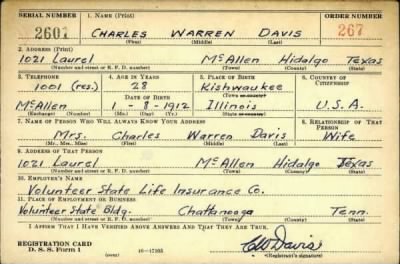 SERIAL NUMBER 1. NAME (Print) ORDER NUMBER
2607 CHARLES WARREN DAVIS 267
(First) (Middle) (Last)
2. ADDRESS (Print)
1021 Laurel McAllen Hidalgo Texas
(Number and street or R. F. D. number) (Town) (County) (State)
3. TELEPHONE 4. AGE IN YEARS 5. PLACE OF BIRTH 6. COUNTRY OF CITIZENSHIP
1001 (res.) 28 Kishwaukee
DATE OF BIRTH (Town or county)
McAllen 1-8-1912 Illinois U.S.A.
(Exchange) (Number) (Mo.) (Day) (Yr.) (State or country)
7. NAME OF PERSON WHO WILL ALWAYS KNOW YOUR ADDRESS 8. RELATIONSHIP OF THAT PERSON
Mrs. Charles Warren Davis Wife
(Mr., Mrs., Miss) (First) (Middle) (Last)
9. ADDRESS OF THAT PERSON
1021 Laurel McAllen Hidalgo Texas
(Number and street or R. F. D. number) (Town) (County) (State)
10. EMPLOYER'S NAME
Volunteer State Life Insurance Co.
11. PLACE OF EMPLOYMENT OR BUSINESS
Volunteer State Bldg. Chattanooga Tenn.
(Number and street or R. F. D. number) (Town) (County) (State)
I AFFIRM THAT I HAVE VERIFIED ABOVE ANSWERS AND THAT THEY ARE TRUE.
REGISTRATION CARD
D. S. S. Form 1 (over) 16-17105 CW Davis
(Registrant's signature)